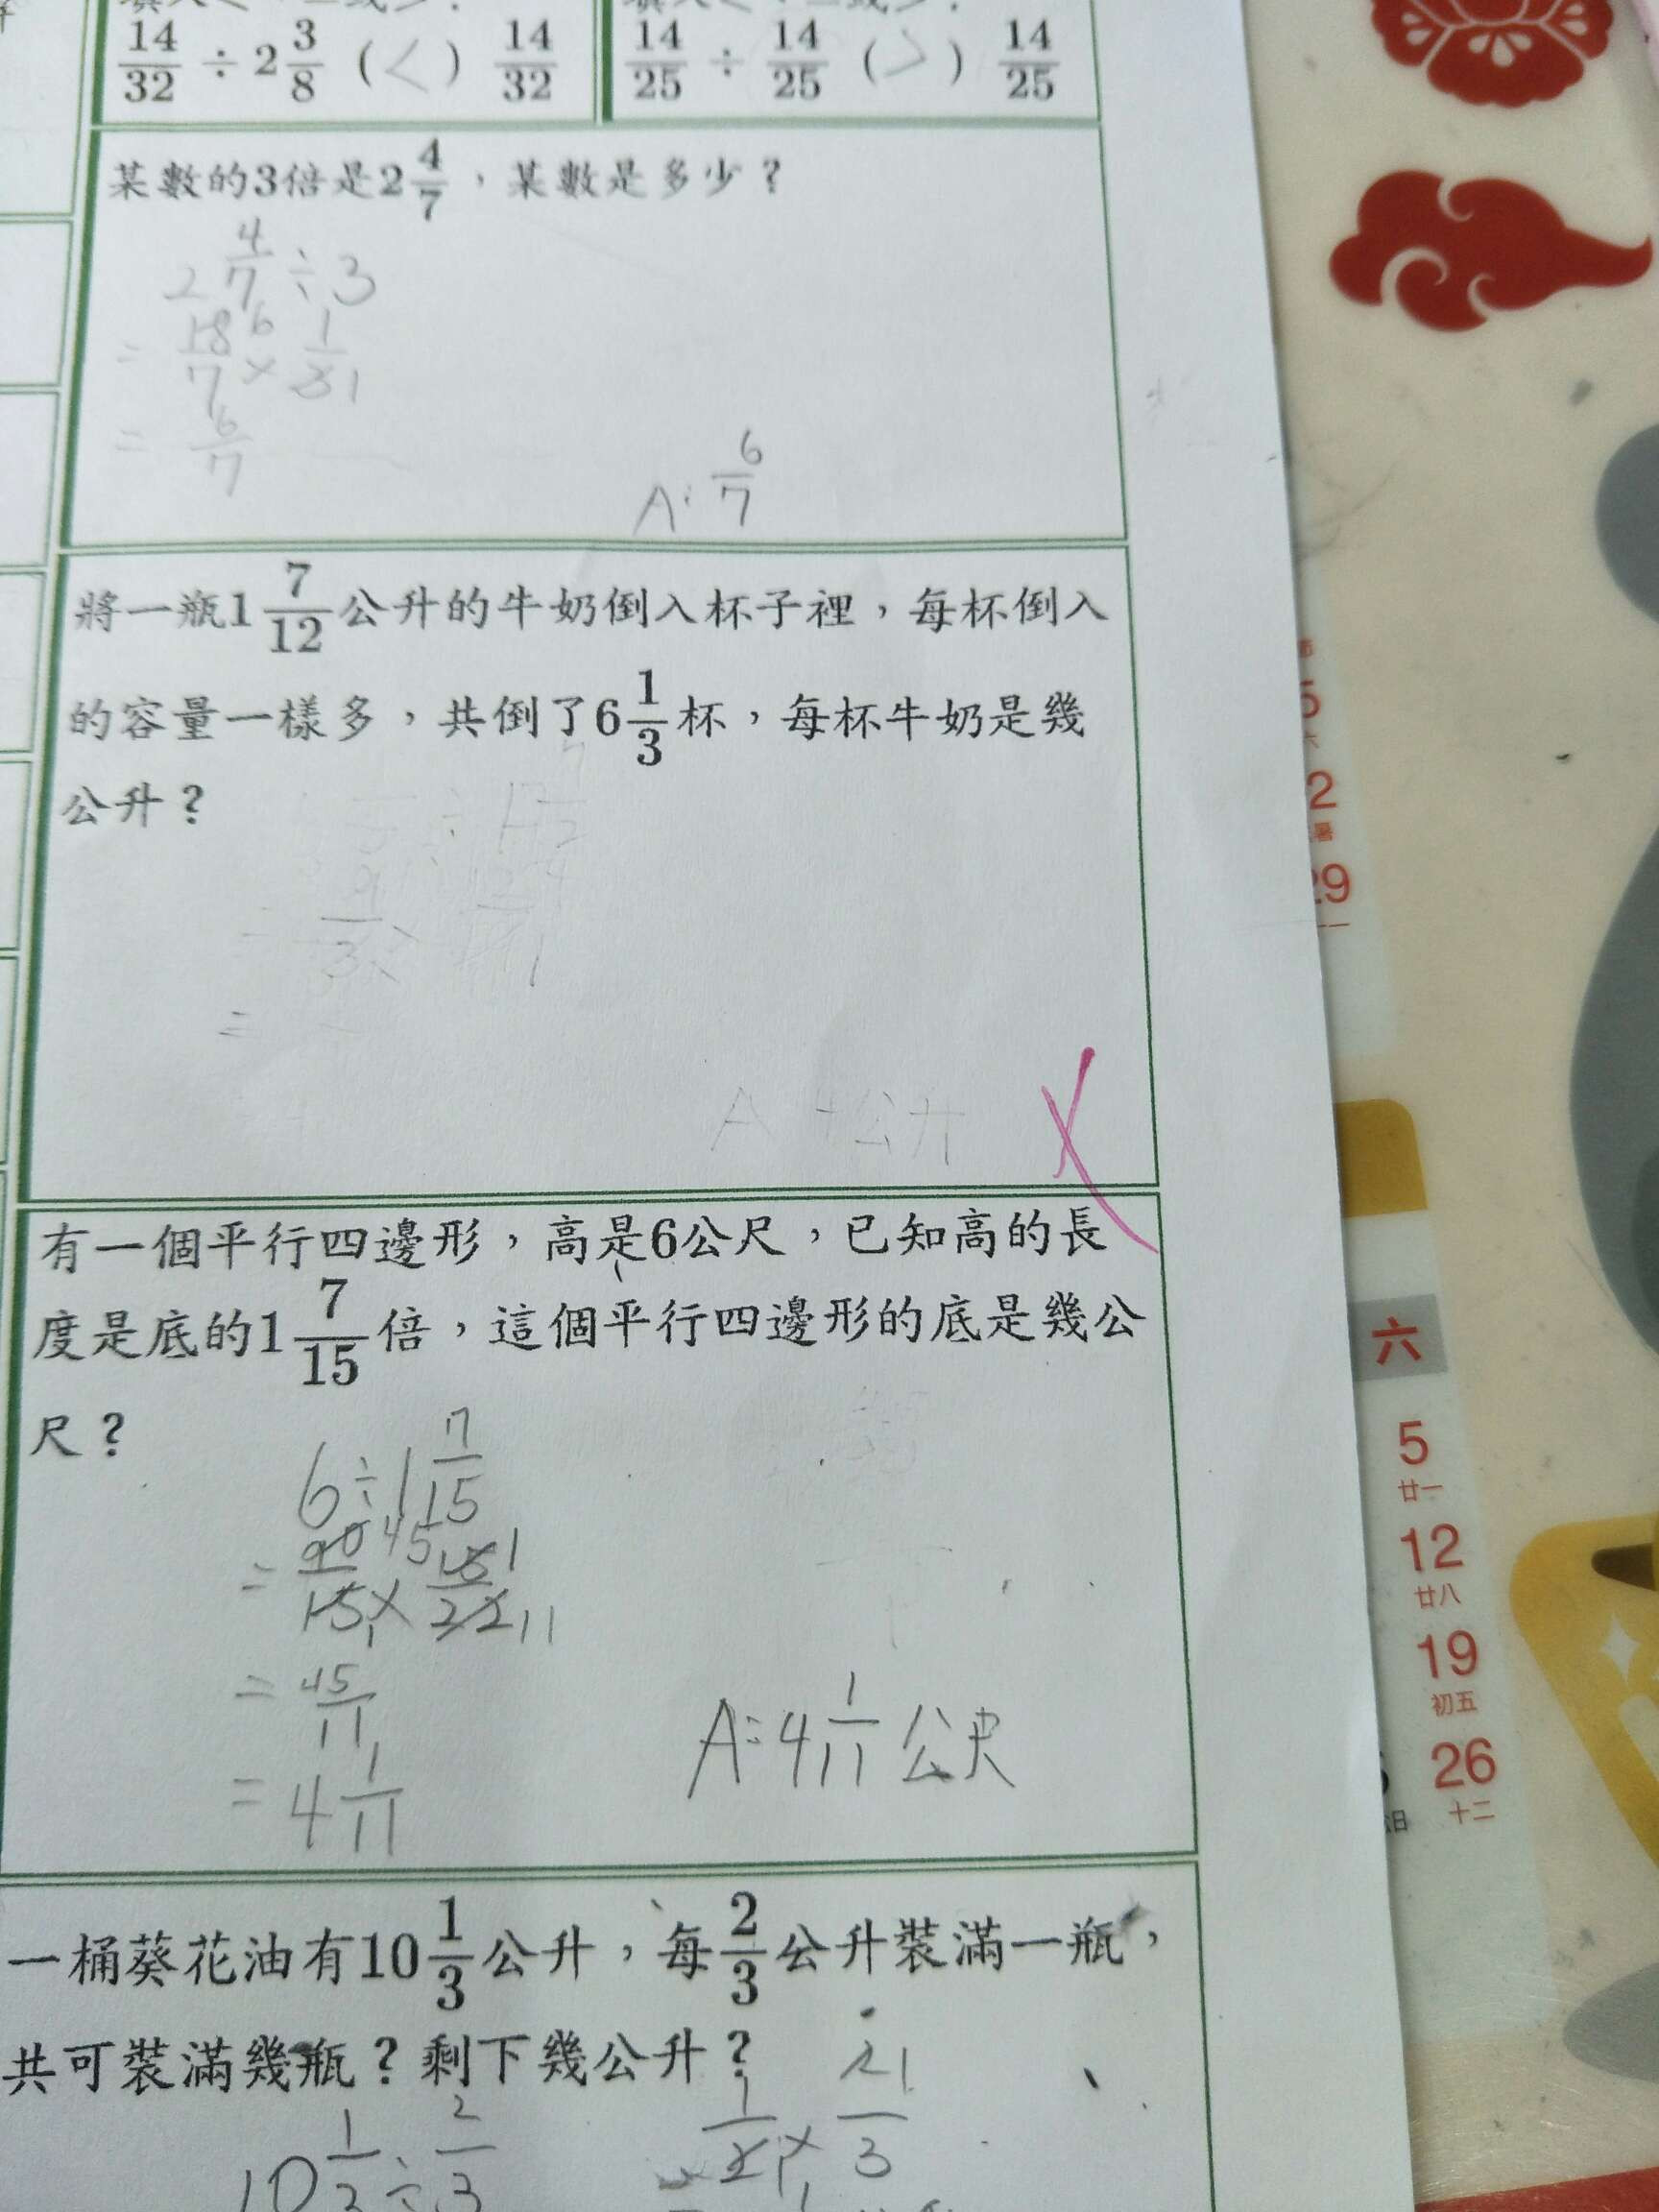 14/32 ÷ 2 3/8 (<) 14/32
14/25 ÷ 14/25 (>) 14/25
某數的3倍是2 4/7，某數是多少？
2 4/7 ÷ 3
= 18/7 6 × 1/3 1
= 6/7
A: 6/7
將一瓶1 7/12公升的牛奶倒入杯子裡，每杯倒入
的容量一樣多，共倒了6 1/3杯，每杯牛奶是幾
公升？
A 4公升
有一個平行四邊形，高是6公尺，已知高的長
度是底的1 7/15倍，這個平行四邊形的底是幾公
尺？
6÷1 7/15
= 90/15 45 1 × 15/22 1 11
= 45/11
= 4 1/11
A: 4 1/11 公尺
一桶葵花油有10 1/3公升，每2/3公升裝滿一瓶，
共可裝滿幾瓶？剩下幾公升？
10 1/3 ÷ 2/3
5
2
29
六
5
廿一
12
廿八
19
初五
26
十二